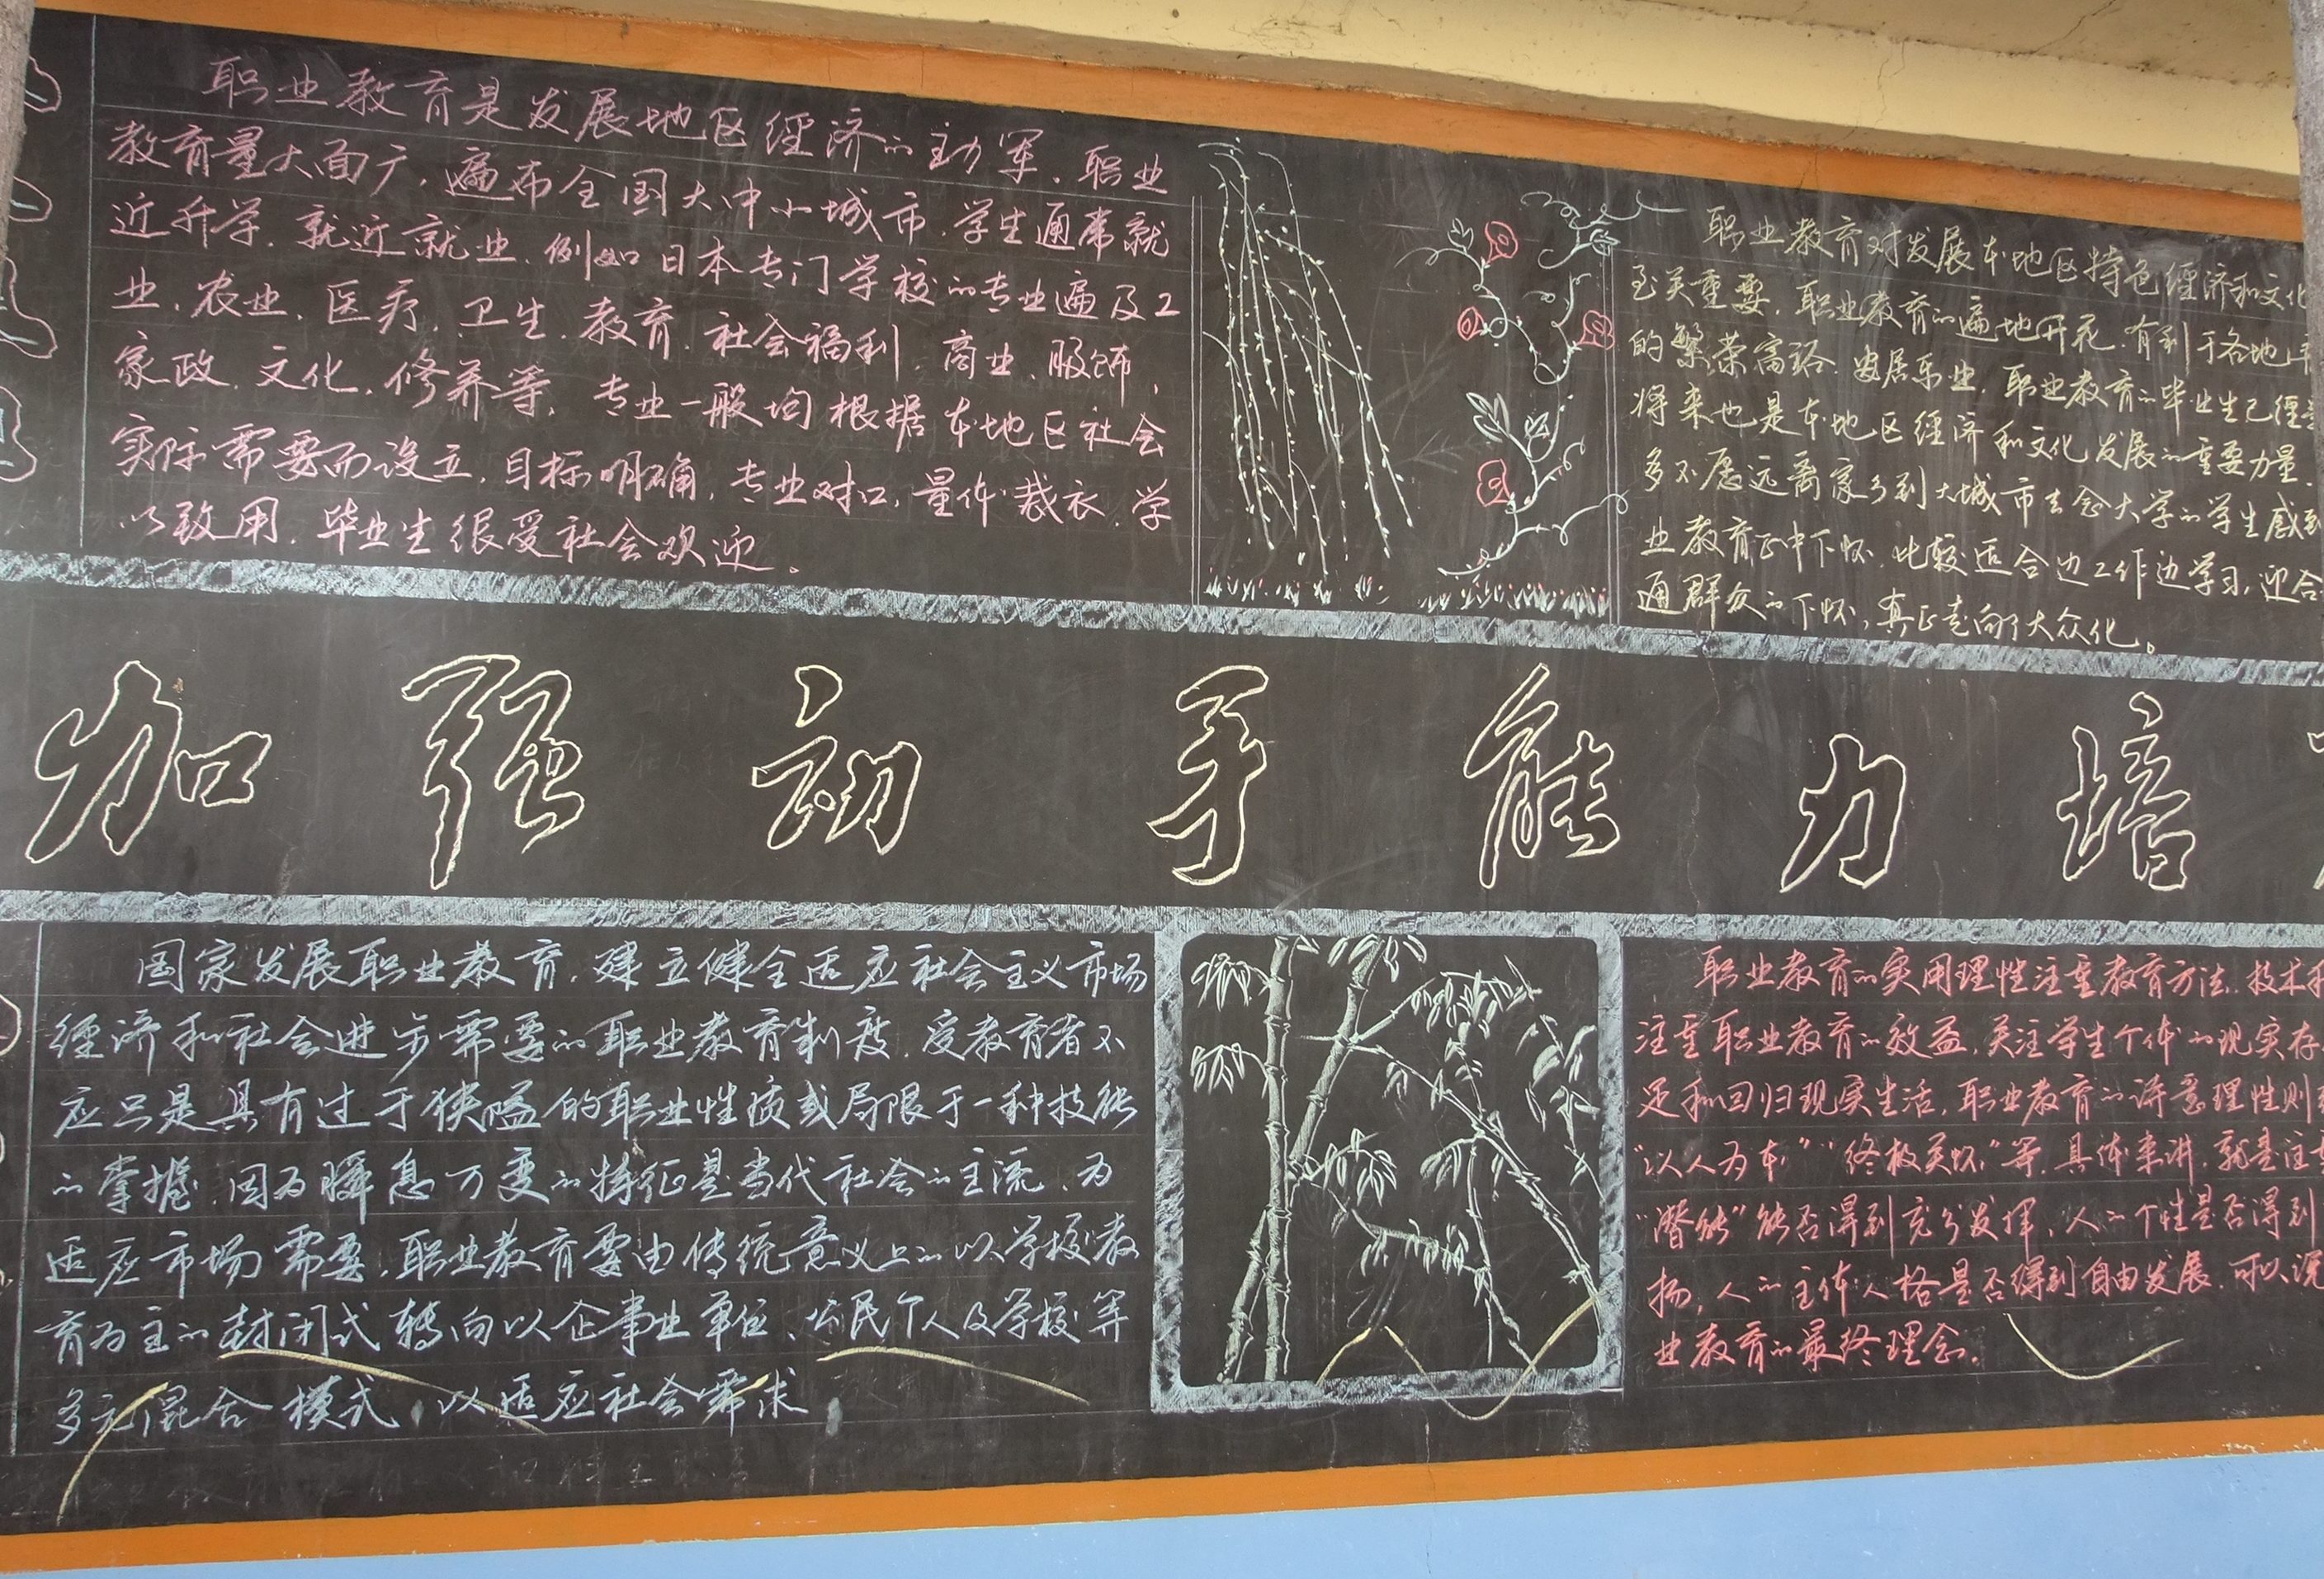 职业教育是发展地区经济的主力军，职业
教育量大面广，遍布全国大中小城市，学生通常就
近升学，就近就业，例如日本专门学校的专业遍及工
业，农业，医疗，卫生，教育，社会福利，商业，服饰，
家政，文化，修养等，专业一般均根据本地区社会
实际需要而设立，目标明确，专业对口，量体裁衣，学
以致用，毕业生很受社会欢迎。
职业教育对发展本地区特色经济和文化
至关重要，职业教育的遍地开花，有利于各地
的繁荣富裕，安居乐业，职业教育的毕业生已经
将来也是本地区经济和文化发展的重要力量，
多不愿远离家乡到大城市去念大学的学生感到
业教育正中下怀，比较适合边工作边学习，迎合
通群众的下怀，真正走向了大众化。
加强动手能力培
国家发展职业教育，建立健全适应社会主义市场
经济和社会进步需要的职业教育制度，受教育者不
应只是具有过于狭隘的职业性质或局限于一种技能
的掌握，因为瞬息万变的特征是当代社会的主流，为
适应市场需要，职业教育要由传统意义上的以学校教
育为主的封闭式转向以企事业单位、公民个人及学校等
多元混合模式，以适应社会需求
职业教育的实用理性注重教育方法，技术
注重职业教育的效益，关注学生个体的现实存
足和回归现实生活，职业教育的诗意理性则
“以人为本”“终极关怀”等，具体来讲，就是注重
“潜能”能否得到充分发挥，人的个性是否得到
扬，人的主体人格是否得到自由发展，可以说
业教育的最终理念。